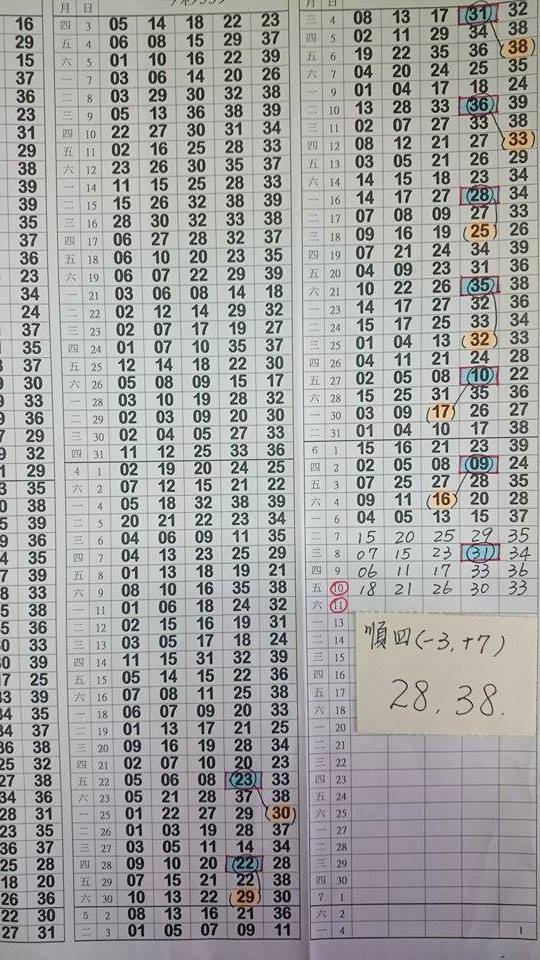 月 日
16
29
15
37
36
23
31
29
38
39
39
35
37
36
23
34
24
37
35
37
30
33
36
29
32
29
35
38
39
36
35
39
33
38
36
33
39
25
39
35
37
36 38
25 32
27 38
34 36
28 31
23 35
36 37
25 28
18 20
26 36
22 30
27 31
四 3 05 14 18 22 23
五 4 06 08 15 29 37
六 5 01 10 16 22 39
一 7 03 06 14 20 26
二 8 03 29 30 32 38
三 9 05 13 36 38 39
四 10 22 27 30 31 34
五 11 02 16 25 28 33
六 12 23 26 30 35 37
一 14 11 15 25 28 33
二 15 15 26 32 38 39
三 16 28 30 32 33 38
四 17 06 27 28 32 37
五 18 06 10 20 23 35
六 19 06 07 22 29 39
一 21 03 06 08 14 18
二 22 02 12 14 29 32
三 23 02 07 17 19 27
四 24 01 07 10 35 37
五 25 12 14 18 22 30
六 26 05 08 09 15 17
一 28 03 10 19 28 32
二 29 02 03 09 20 30
三 30 02 04 05 27 33
四 31 11 12 25 33 36
4 1 02 19 20 24 25
六 2 07 12 15 21 22
一 4 05 18 32 38 39
二 5 20 21 22 23 34
三 6 04 06 09 11 35
四 7 04 13 23 25 29
五 8 01 13 18 19 21
六 9 08 10 16 35 38
一 11 01 06 18 24 32
二 12 02 15 16 19 31
三 13 03 05 17 18 24
四 14 11 15 31 32 39
五 15 05 14 15 22 36
六 16 07 08 11 25 38
一 18 06 07 09 20 33
二 19 01 13 17 21 25
三 20 09 16 19 28 34
四 21 02 07 10 20 23
五 22 05 06 08 23 33
六 23 05 21 28 37 38
一 25 01 22 27 29 30
二 26 01 03 19 28 37
三 27 03 05 11 14 34
四 28 09 10 20 22 28
五 29 07 15 21 22 38
六 30 10 13 22 29 30
5 2 08 13 16 21 36
二 3 01 05 07 09 11
月 日
三 4 08 13 17 31 32
四 5 02 11 29 34 38
五 6 19 22 35 36 38
六 7 04 20 24 25 35
一 9 01 04 17 18 24
二 10 13 28 33 36 39
三 11 02 07 27 33 38
四 12 08 12 21 27 33
五 13 03 05 21 26 29
六 14 14 15 18 23 34
一 16 14 17 27 28 34
二 17 07 08 09 27 33
三 18 09 16 19 25 26
四 19 07 21 24 34 39
五 20 04 09 23 31 36
六 21 10 22 26 35 38
一 23 14 17 27 32 36
二 24 15 17 25 33 34
三 25 01 04 13 32 33
四 26 04 11 21 24 28
五 27 02 05 08 10 22
六 28 15 25 31 35 36
一 30 03 09 17 26 27
二 31 01 04 10 17 38
6 1 15 16 21 23 39
四 2 02 05 08 09 24
五 3 07 25 27 28 35
六 4 09 11 16 20 28
一 6 04 05 13 15 37
二 7 15 20 25 29 35
三 8 07 15 23 31 34
四 9 06 11 17 33 36
五 10 18 21 26 30 33
六 11
一 13
二 14
三 15
四 16
五 17
六 18
一 20
二 21
三 22
四 23
五 24
六 25
一 27
二 28
三 29
四 30
7 1
六 2
一 4
順四(-3,+7)
28.38.